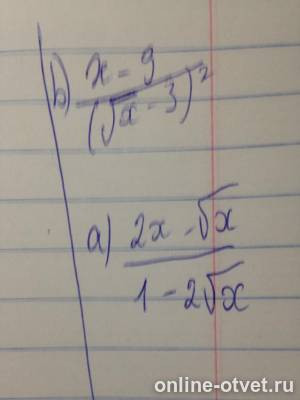 b) x - 9
(√x - 3)²
a) 2x - √x
1 - 2√x
online-otvet.ru